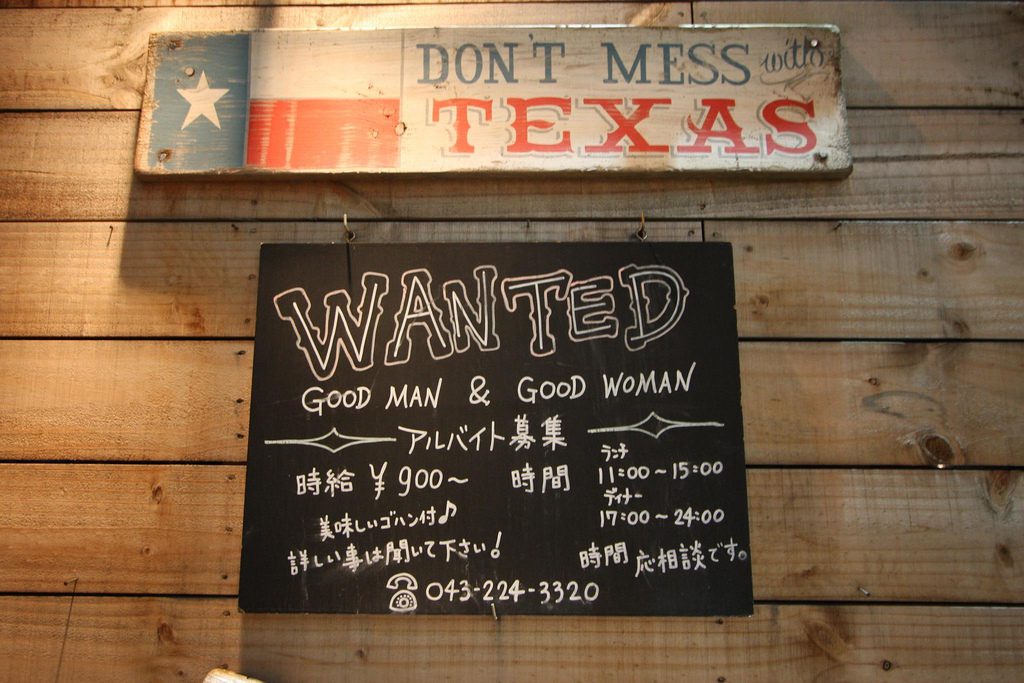 DON'T MESS with
TEXAS
WANTED
GOOD MAN & GOOD WOMAN
アルバイト募集
時給 ¥900〜
時間
ランチ
11:00〜15:00
ディナー
17:00〜24:00
美味しいゴハン付♪
詳しい事は聞いて下さい!
時間応相談です。
043-224-3320